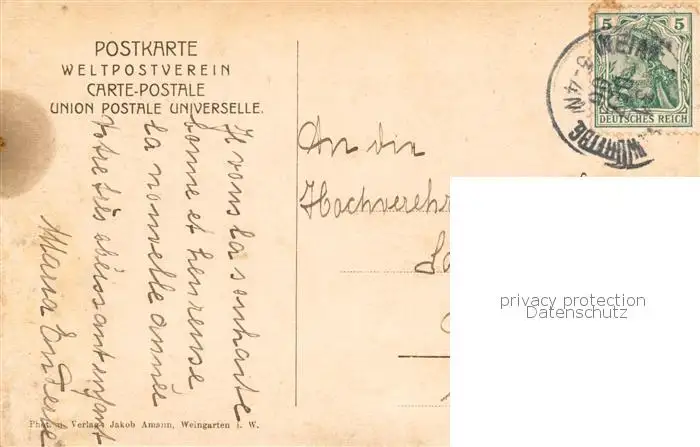 POSTKARTE
WELTPOSTVEREIN
CARTE-POSTALE
UNION POSTALE UNIVERSELLE.
Je vous la souhaite
bonne et heureuse
la nouvelle année
Votre très obéissant enfant
Maria
An die
Hochverehr
privacy protection
Datenschutz
5 5
DEUTSCHES REICH
WEIN
5-4N
WÜRTTBG
Phot. u. Verlag Jakob Amann, Weingarten i. W.